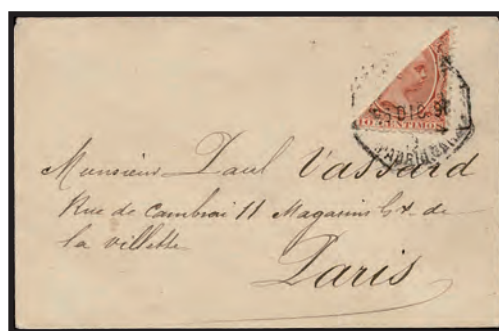 DIC 9
10 CENTIMOS
MADRID
Monsieur Paul Vassard
Rue de Cambrai 11 Magasins Gx de
la villette
Paris